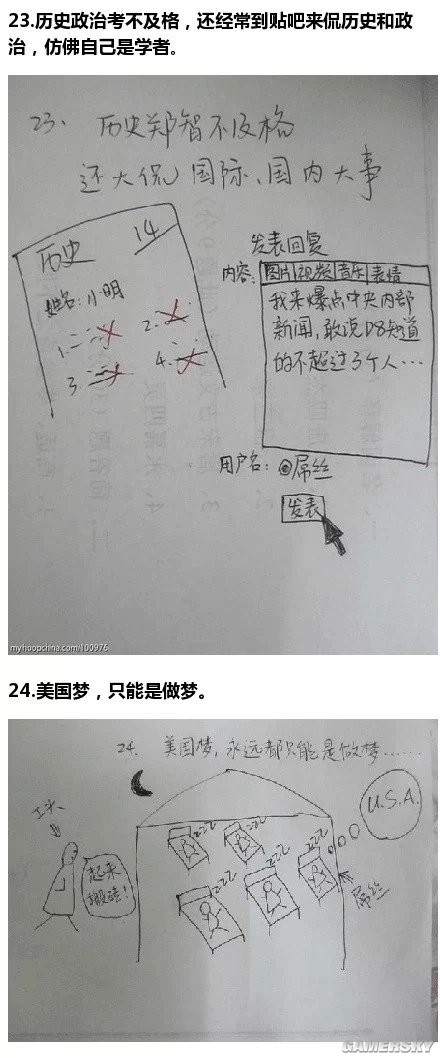 23.历史政治考不及格，还经常到贴吧来侃历史和政
治，仿佛自己是学者。
23、历史郑智不及格
还大侃国际、国内大事
历史 14
姓名:小明
1. 2.
3. 4.
发表回复
内容: 图片 视频 音乐 表情
我来爆点中央内部
新闻,敢说D8知道
的不超过3个人…
用户名: @屌丝
发表
myhoopchina.com/100976
24.美国梦，只能是做梦。
24. 美国梦,永远都只能是做梦……
U.S.A.
工头
zzz zzz
起来
搬砖!
zzz zzz zzz
屌丝
GAMERSKY